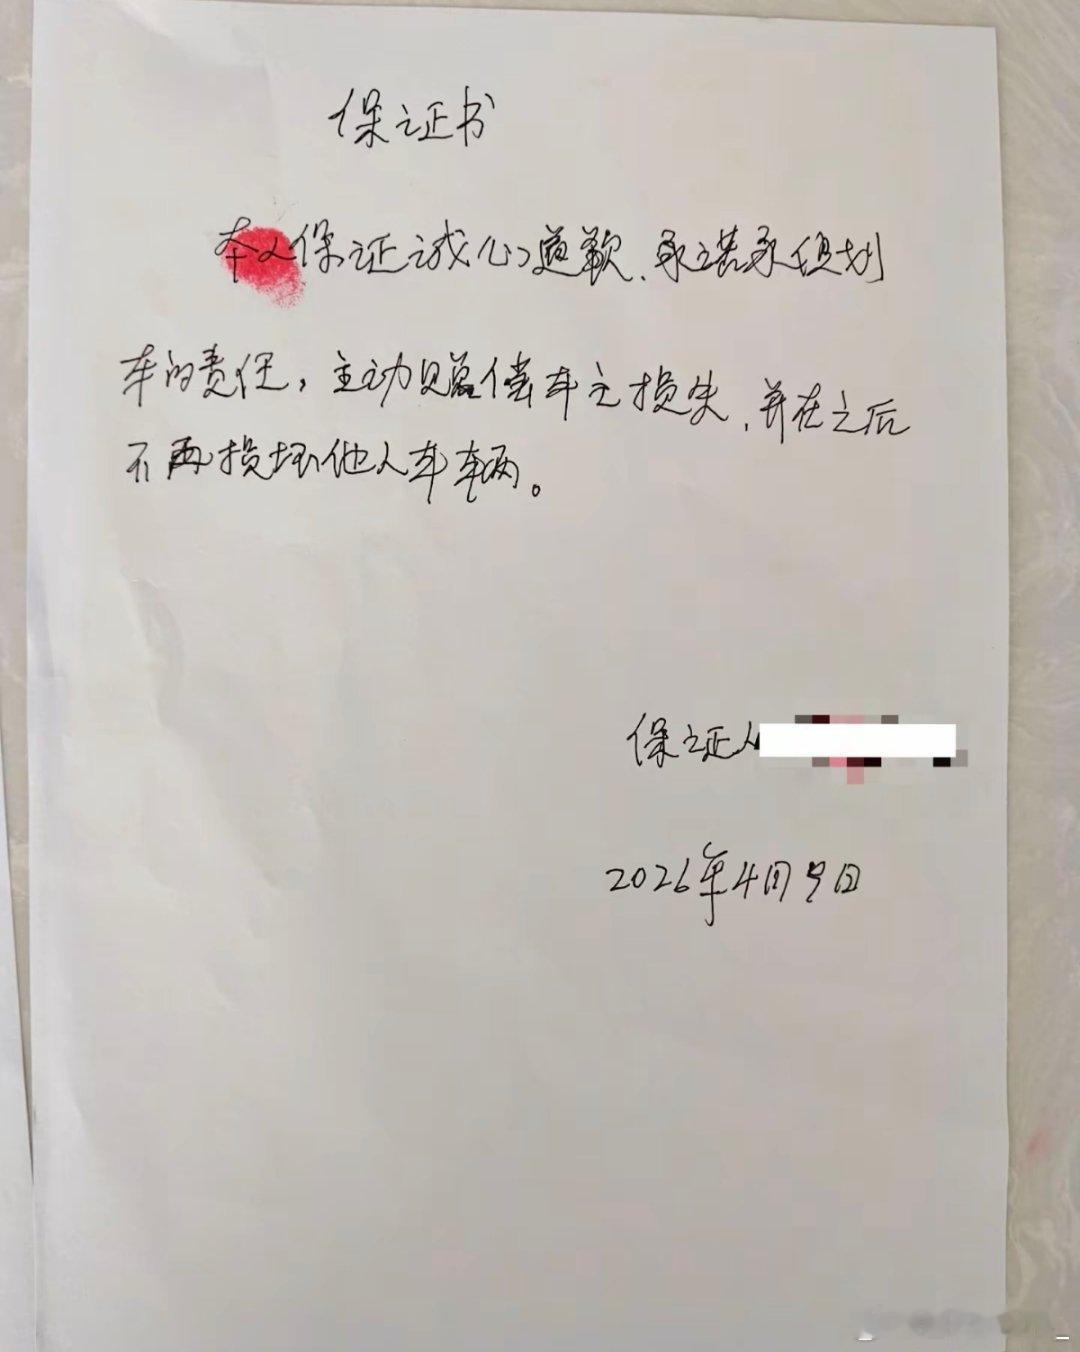 保证书
本人保证诚心道歉,承诺承担划
车的责任,主动赔偿车主损失,并在之后
不再损坏他人车车辆。
保证人
2026年4月9日